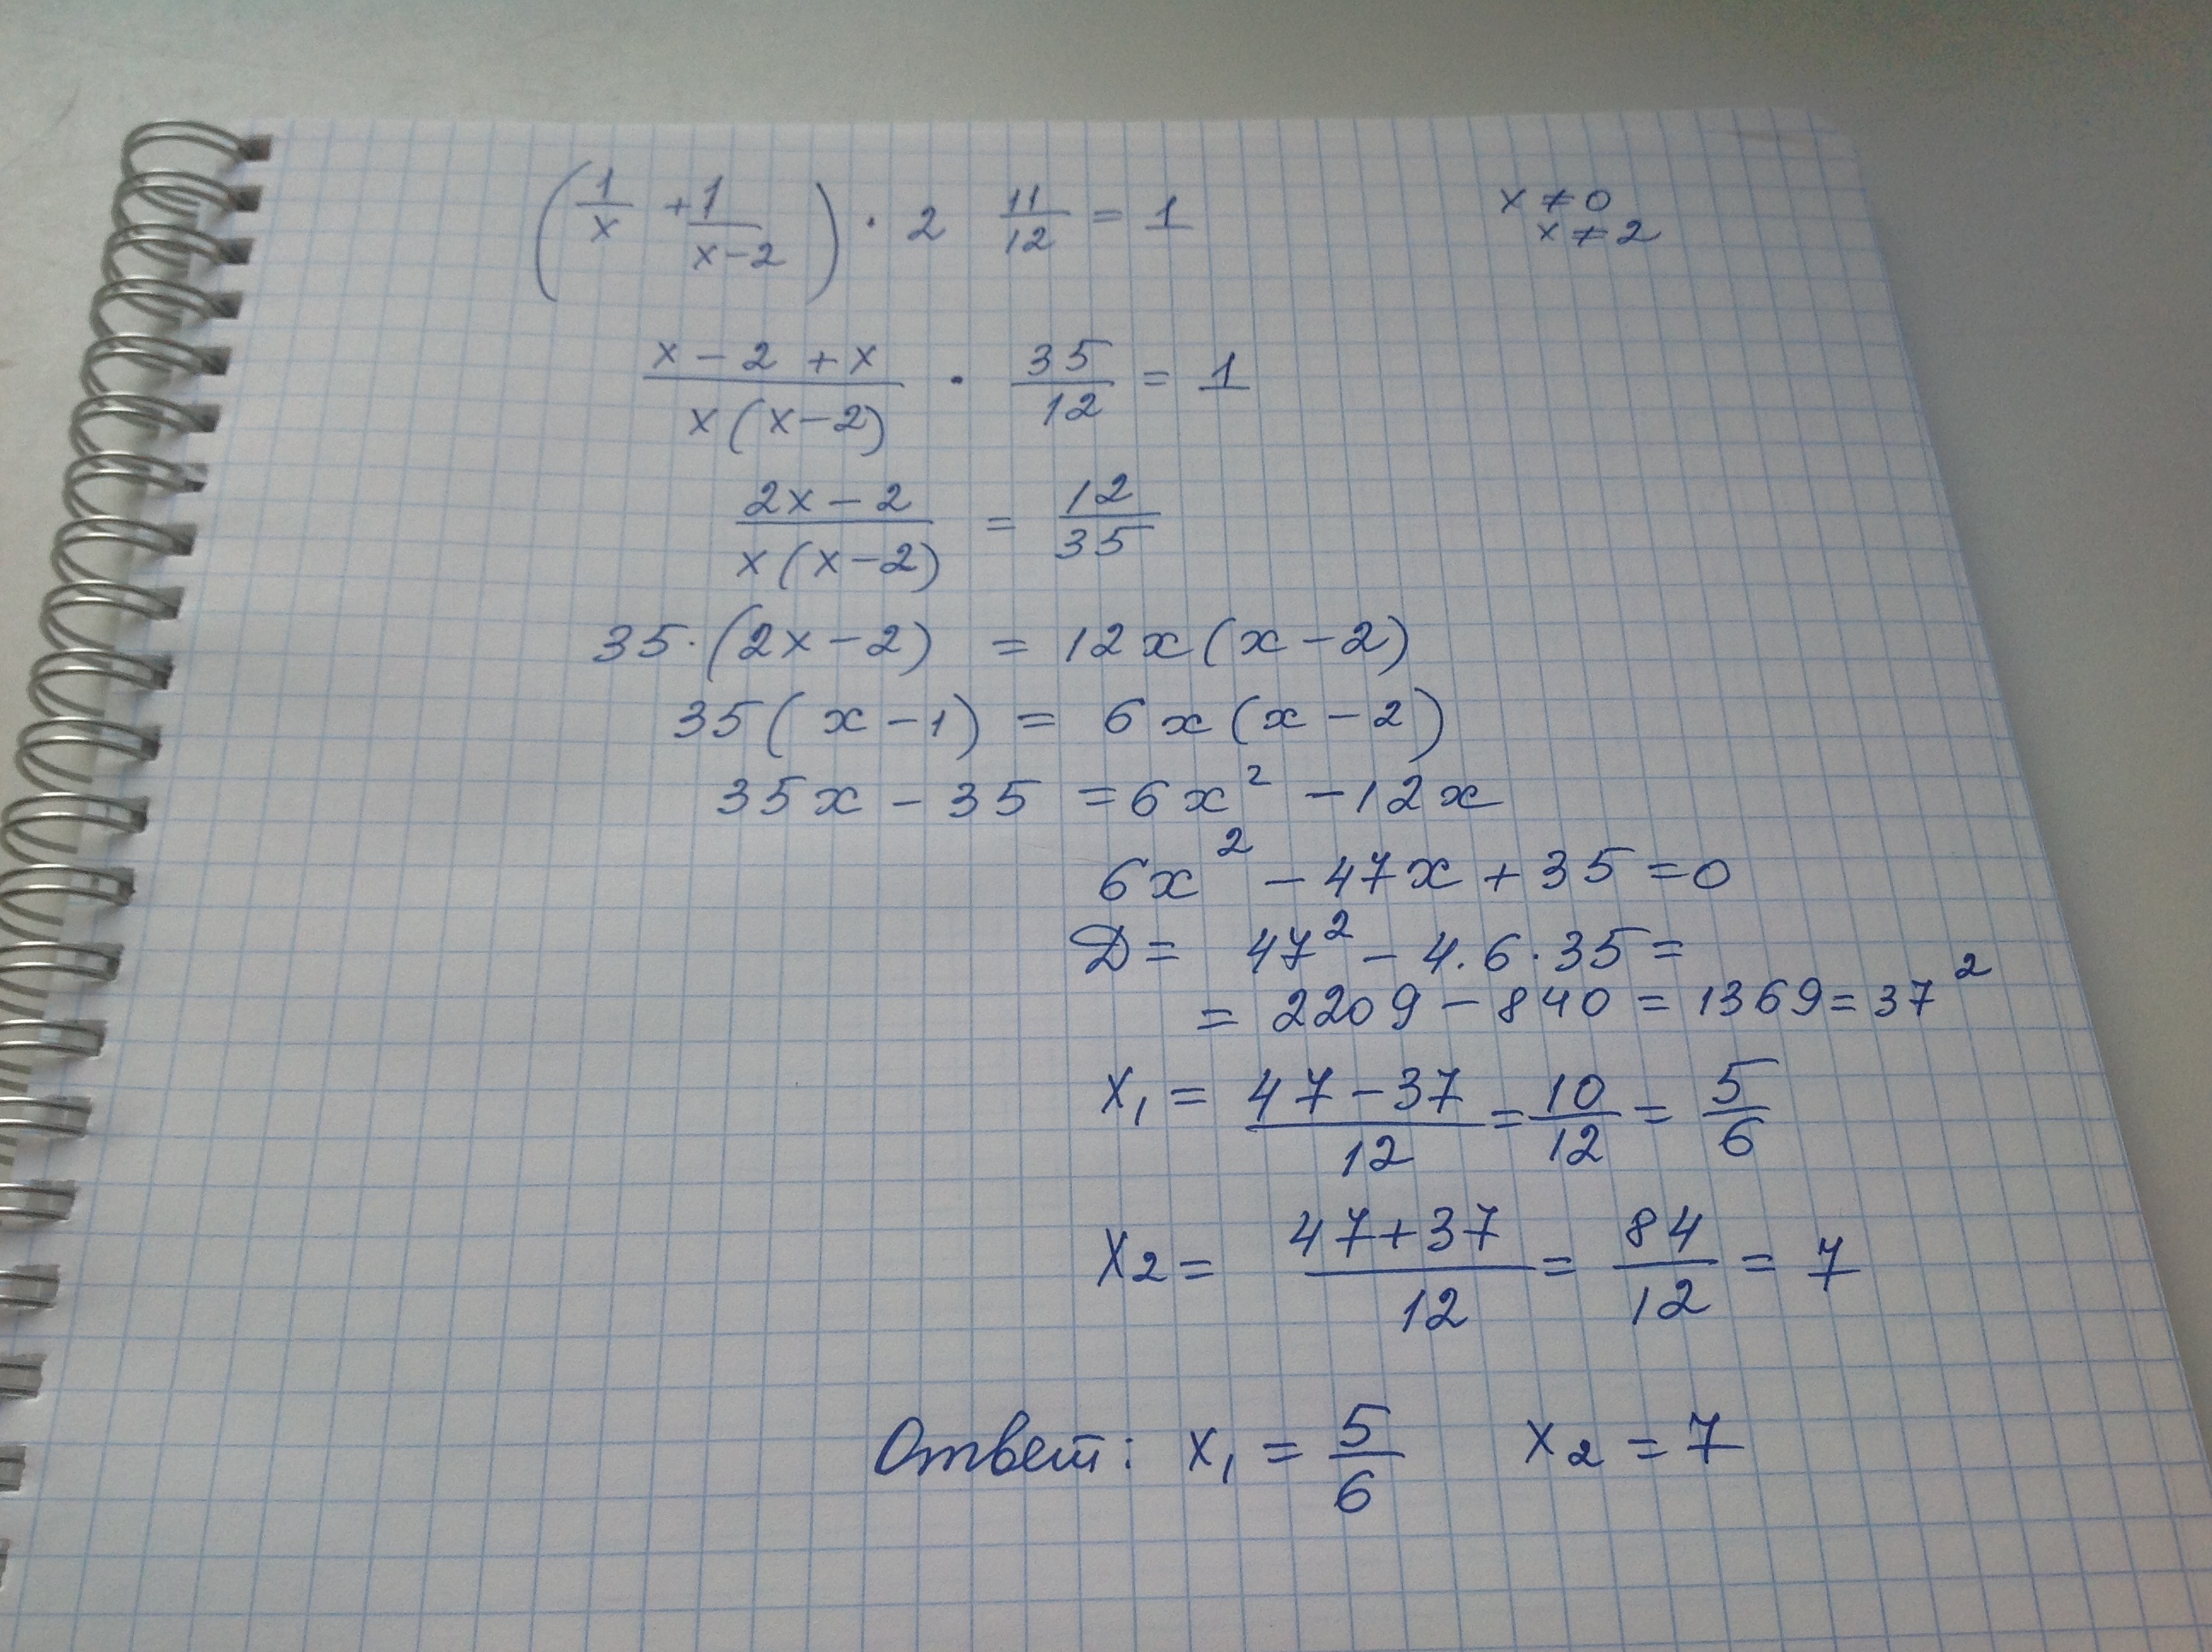 (1/x + 1/(x-2)) · 2 11/12 = 1    x ≠ 0
x ≠ 2
(x - 2 + x)/(x(x-2)) · 35/12 = 1
(2x - 2)/(x(x-2)) = 12/35
35·(2x-2) = 12x(x-2)
35(x-1) = 6x(x-2)
35x - 35 = 6x² - 12x
6x² - 47x + 35 = 0
D = 47² - 4·6·35 =
= 2209 - 840 = 1369 = 37²
x₁ = (47-37)/12 = 10/12 = 5/6
x₂ = (47+37)/12 = 84/12 = 7
Ответ: x₁ = 5/6    x₂ = 7